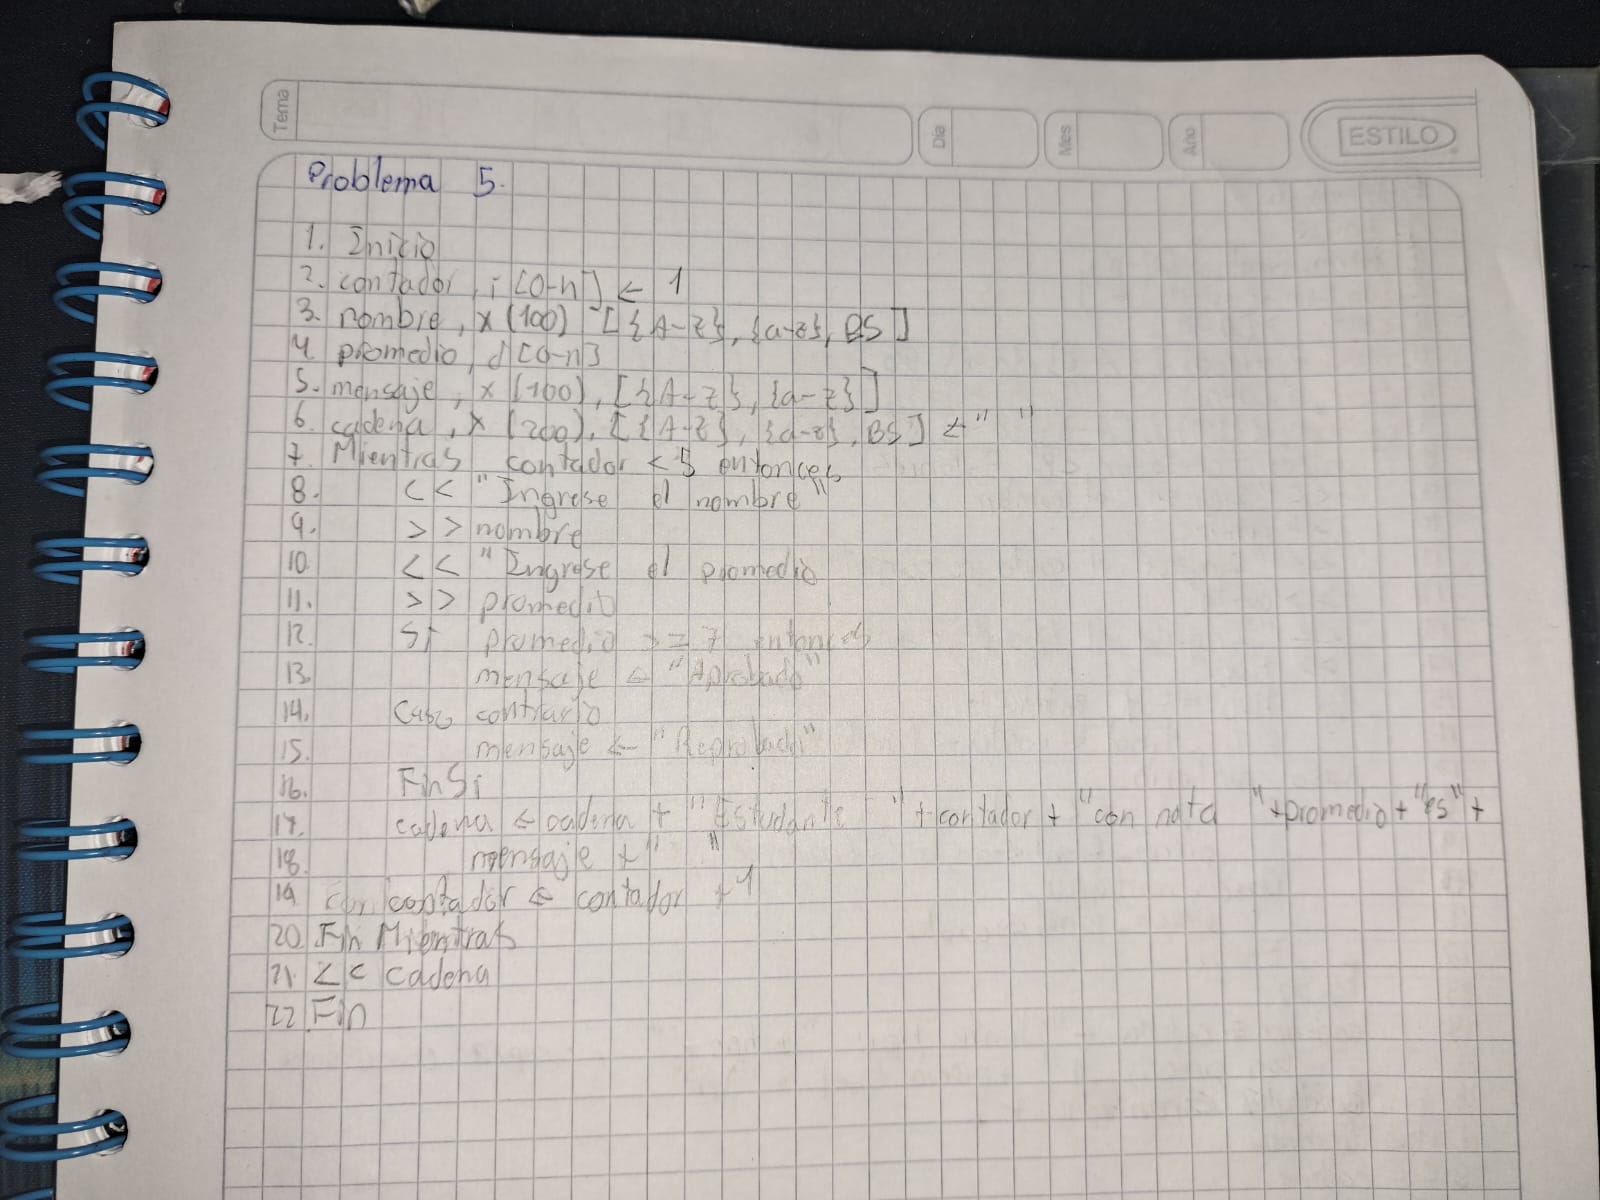 Tema
Día
Mes
Año
ESTILO
Problema 5.
1. Inicio
2. contador, i [0-n] ← 1
3. nombre, x (100) [{A-Z}, {a-z}, BS]
4. promedio, d [0-n]
5. mensaje, x (100), [{A-Z}, {a-z}]
6. cadena, x (200), [{A-Z}, {a-z}, BS] ← " "
7. Mientras contador < 5 entonces
8. << "Ingrese el nombre"
9. >> nombre
10. << "Ingrese el promedio
11. >> promedio
12. Si promedio >= 7 entonces
13. mensaje ← "Aprobado"
14. Caso contrario
15. mensaje ← "Reprobado"
16. Fin Si
17. cadena ← cadena + "Estudante " + contador + "con nota " + promedio + "es" +
18. mensaje + " "
19. con contador ← contador + 1
20. Fin Mientras
21. << cadena
22. Fin